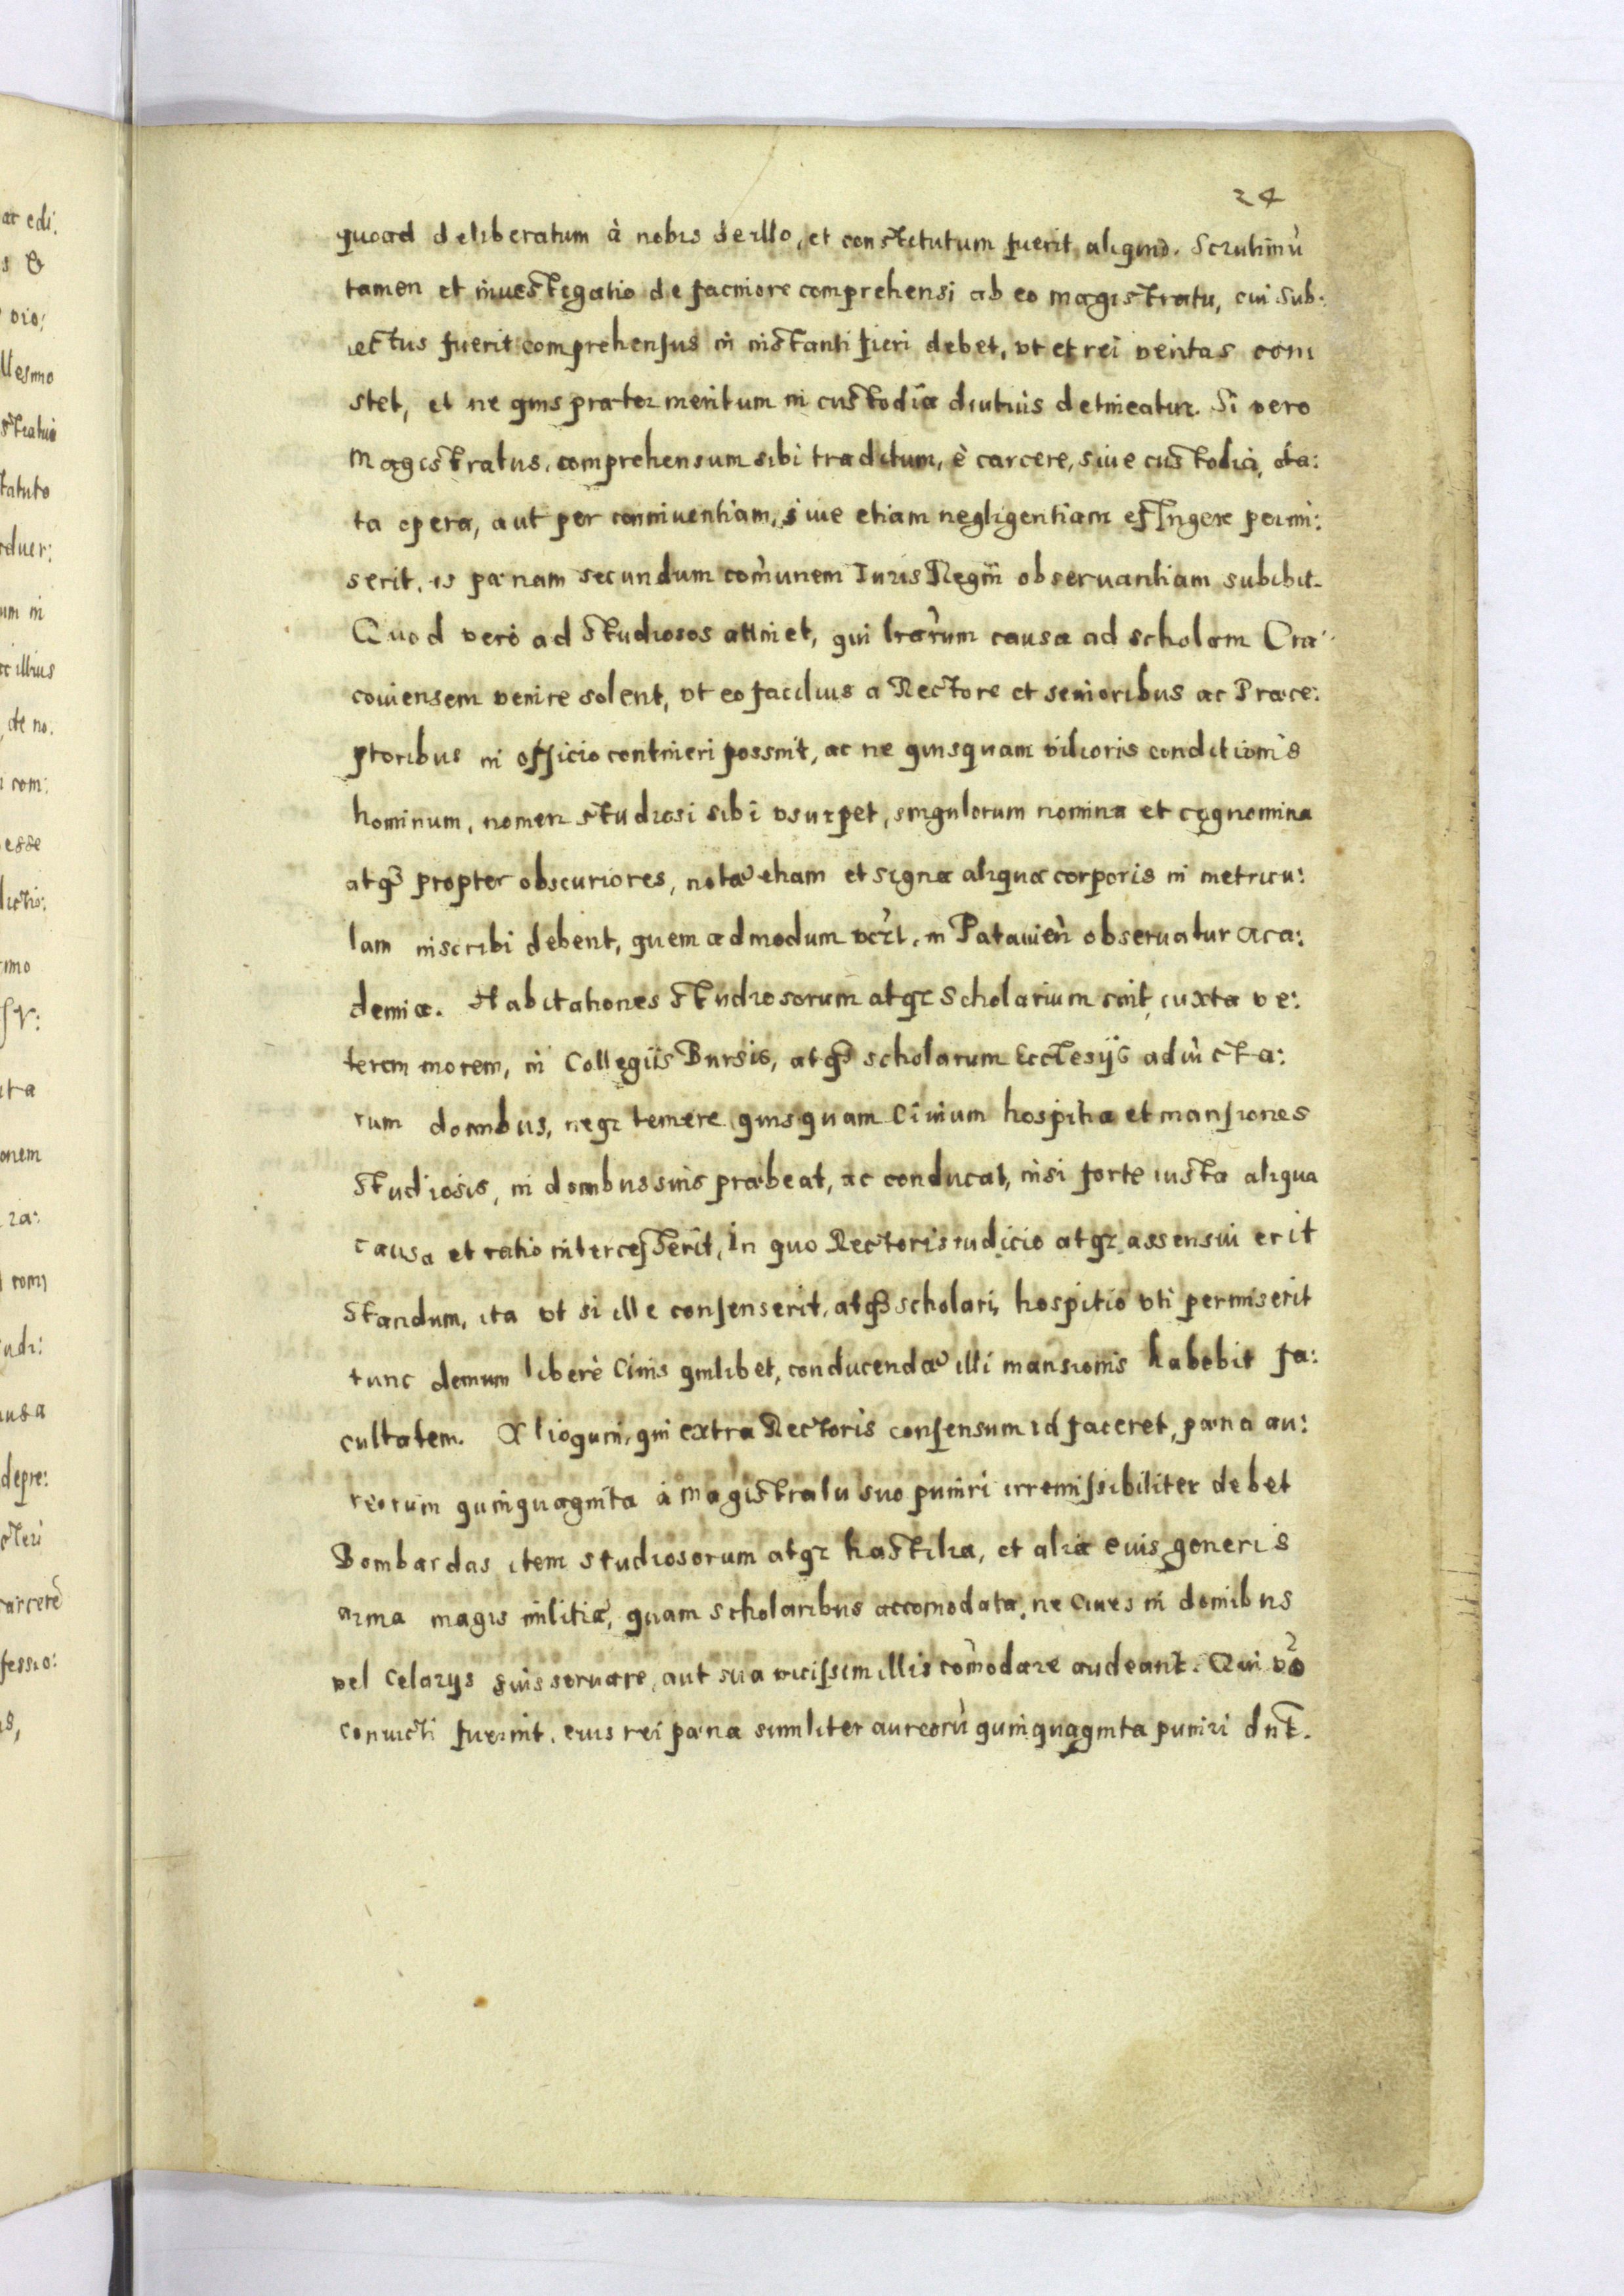 24
quoad deliberatum à nobis de illo, et constitutum fuerit aliquid. Scrutiniū
tamen et inuestigatio de facinore comprehensi ab eo magistratu, cui sub:
iectus fuerit comprehensus in instanti fieri debet, vt et rei veritas con
stet, et ne quis præter meritum in custodia diutius detineatur. Si vero
Magistratus, comprehensum sibi traditum, è carcere, siue custodia, da:
ta opera, aut per conniuentiam, siue etiam negligentiam effugere permi:
serit, is pœnam secundum com̃unem Iuris Regnī obseruantiam subibit.
Quod verò ad studiosos attinet, qui lrārum causa ad scholam Cra:
couiensem venire solent, vt eo facilius a Rectore et senioribus ac Præce:
ptoribus in officio contineri possint, ac ne quisquam vilioris conditionis
hominum, nomen studiosi sibi vsurpet, singulorum nomina et cognomina
atq3 propter obscuriores, notæ etiam et signa aliqua corporis in metricu:
lam inscribi debent, quem admodum in Patauieñ obseruatur Aca:
demia. Habitationes studiosorum atq3 Scholarium sint, iuxta ve:
terem morem, in Collegiis Bursis, atq3 scholarum Ecclesijs adiūcta:
rum domibus, neq3 temere quisquam Ciuium hospitia et mansiones
studiosis, in domibus suis præbeat, ac conducat, nisi forte iusta aliqua
causa et ratio intercesserit, in quo Rectoris iudicio atq3 assensui erit
standum, ita vt si ille consenserit, atq3 scholari, hospitio vti permiserit
tunc demum liberè Ciuis quilibet, conducendæ illi mansionis habebit fa:
cultatem. Alioquin, qui extra Rectoris consensum id faceret, pœna au:
reorum quinquaginta à magistratu suo puniri irremissibiliter debet
Bombardas item studiosorum atq3 hastilia, et alia euis generis
arma magis militiæ, quam scholaribus accomodata, ne Ciues in domibus
vel Celarijs suis seruare, aut sua vicissim illis com̃odare audeant. Qui vō
conuicti fuerint, eius rei pœna similiter aureorū quinquaginta puniri dn̄t.